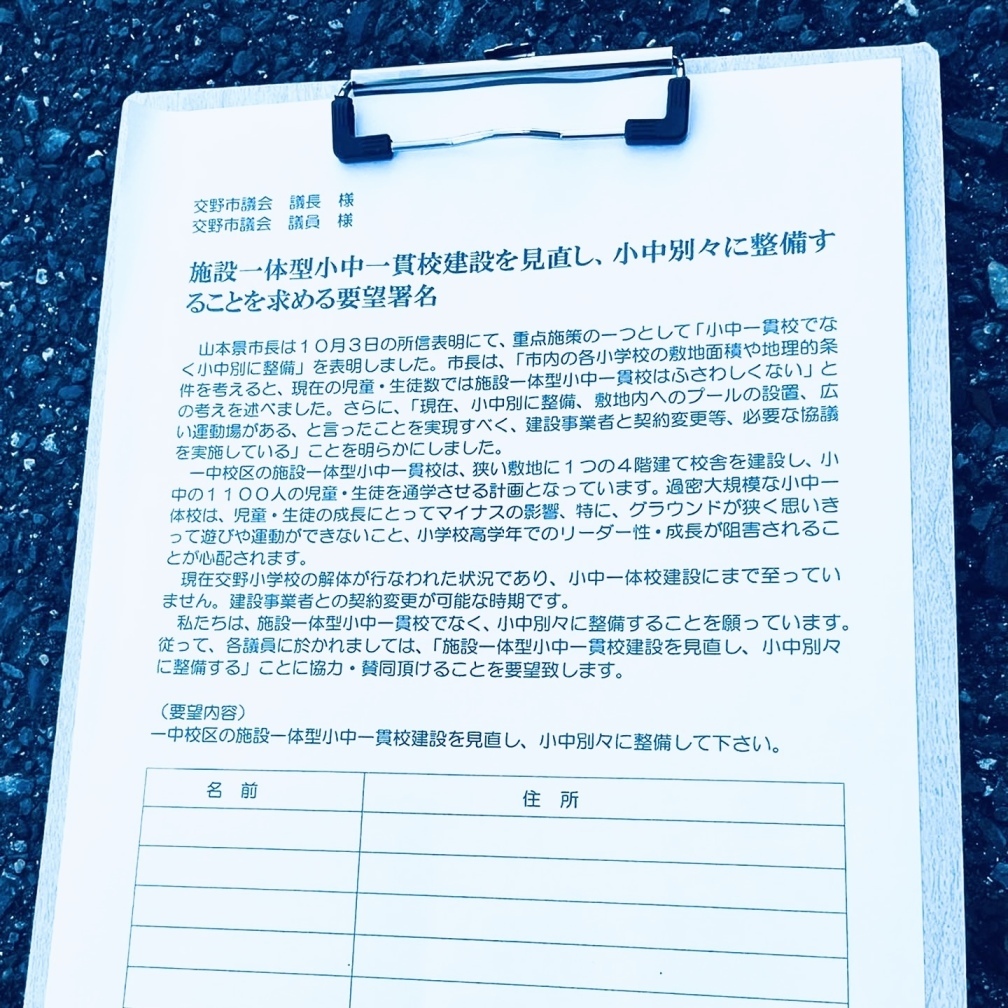 交野市議会　議長　様
交野市議会　議員　様
施設一体型小中一貫校建設を見直し、小中別々に整備す
ることを求める要望署名
山本景市長は１０月３日の所信表明にて、重点施策の一つとして「小中一貫校でな
く小中別に整備」を表明しました。市長は、「市内の各小学校の敷地面積や地理的条
件を考えると、現在の児童・生徒数では施設一体型小中一貫校はふさわしくない」と
の考えを述べました。さらに、「現在、小中別に整備、敷地内へのプールの設置、広
い運動場がある、と言ったことを実現すべく、建設事業者と契約変更等、必要な協議
を実施している」ことを明らかにしました。
一中校区の施設一体型小中一貫校は、狭い敷地に１つの４階建て校舎を建設し、小
中の１１００人の児童・生徒を通学させる計画となっています。過密大規模な小中一
体校は、児童・生徒の成長にとってマイナスの影響、特に、グラウンドが狭く思いき
って遊びや運動ができないこと、小学校高学年でのリーダー性・成長が阻害されるこ
とが心配されます。
現在交野小学校の解体が行なわれた状況であり、小中一体校建設にまで至ってい
ません。建設事業者との契約変更が可能な時期です。
私たちは、施設一体型小中一貫校でなく、小中別々に整備することを願っています。
従って、各議員に於かれましては、「施設一体型小中一貫校建設を見直し、小中別々
に整備する」ことに協力・賛同頂けることを要望致します。
（要望内容）
一中校区の施設一体型小中一貫校建設を見直し、小中別々に整備して下さい。
名　前　住　所